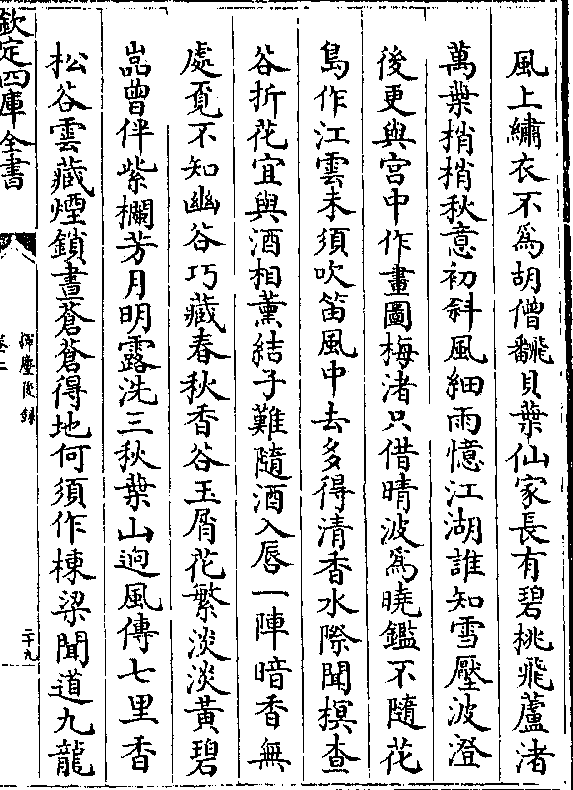 風上繡衣不為胡僧翻貝葉仙家長有碧桃飛蘆渚
萬葉梢梢秋意初斜風細雨憶江湖誰知雪壓波澄
後更與宫中作畫圖梅渚只借晴波為曉鑑不隨花
島作江雲未須吹笛風中去多得清香水際聞榠查
谷折花宜與酒相薫結子難隨酒入唇一陣暗香無
處覔不知幽谷巧藏春秋香谷玉屑花繁淡淡黄碧
嵓曾伴紫欄芳月明露洗三秋葉山逈風傳七里香
松谷雲藏煙鎖晝蒼蒼得地何須作棟梁聞道九龍
欽定四庫全書
揮麈後録
卷二
二十九